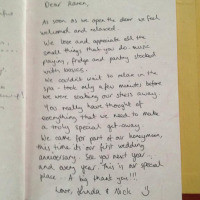 Dear Karen,
As soon as we open the door we feel
welcomed and relaxed.
We love and appreciate all the
small things that you do - music
playing, fridge and pantry stocked
with basics.
We couldn't wait to relax in the
spa - took only a few minutes before
we were soaking our stress away.
You really have thought of
everything that we need to make
a truly special get-away.
We came for part of our honeymoon,
this time its our first wedding
anniversary. See you next year
and every year. This is our special
place. A big thank you!!!
Love, & Nick